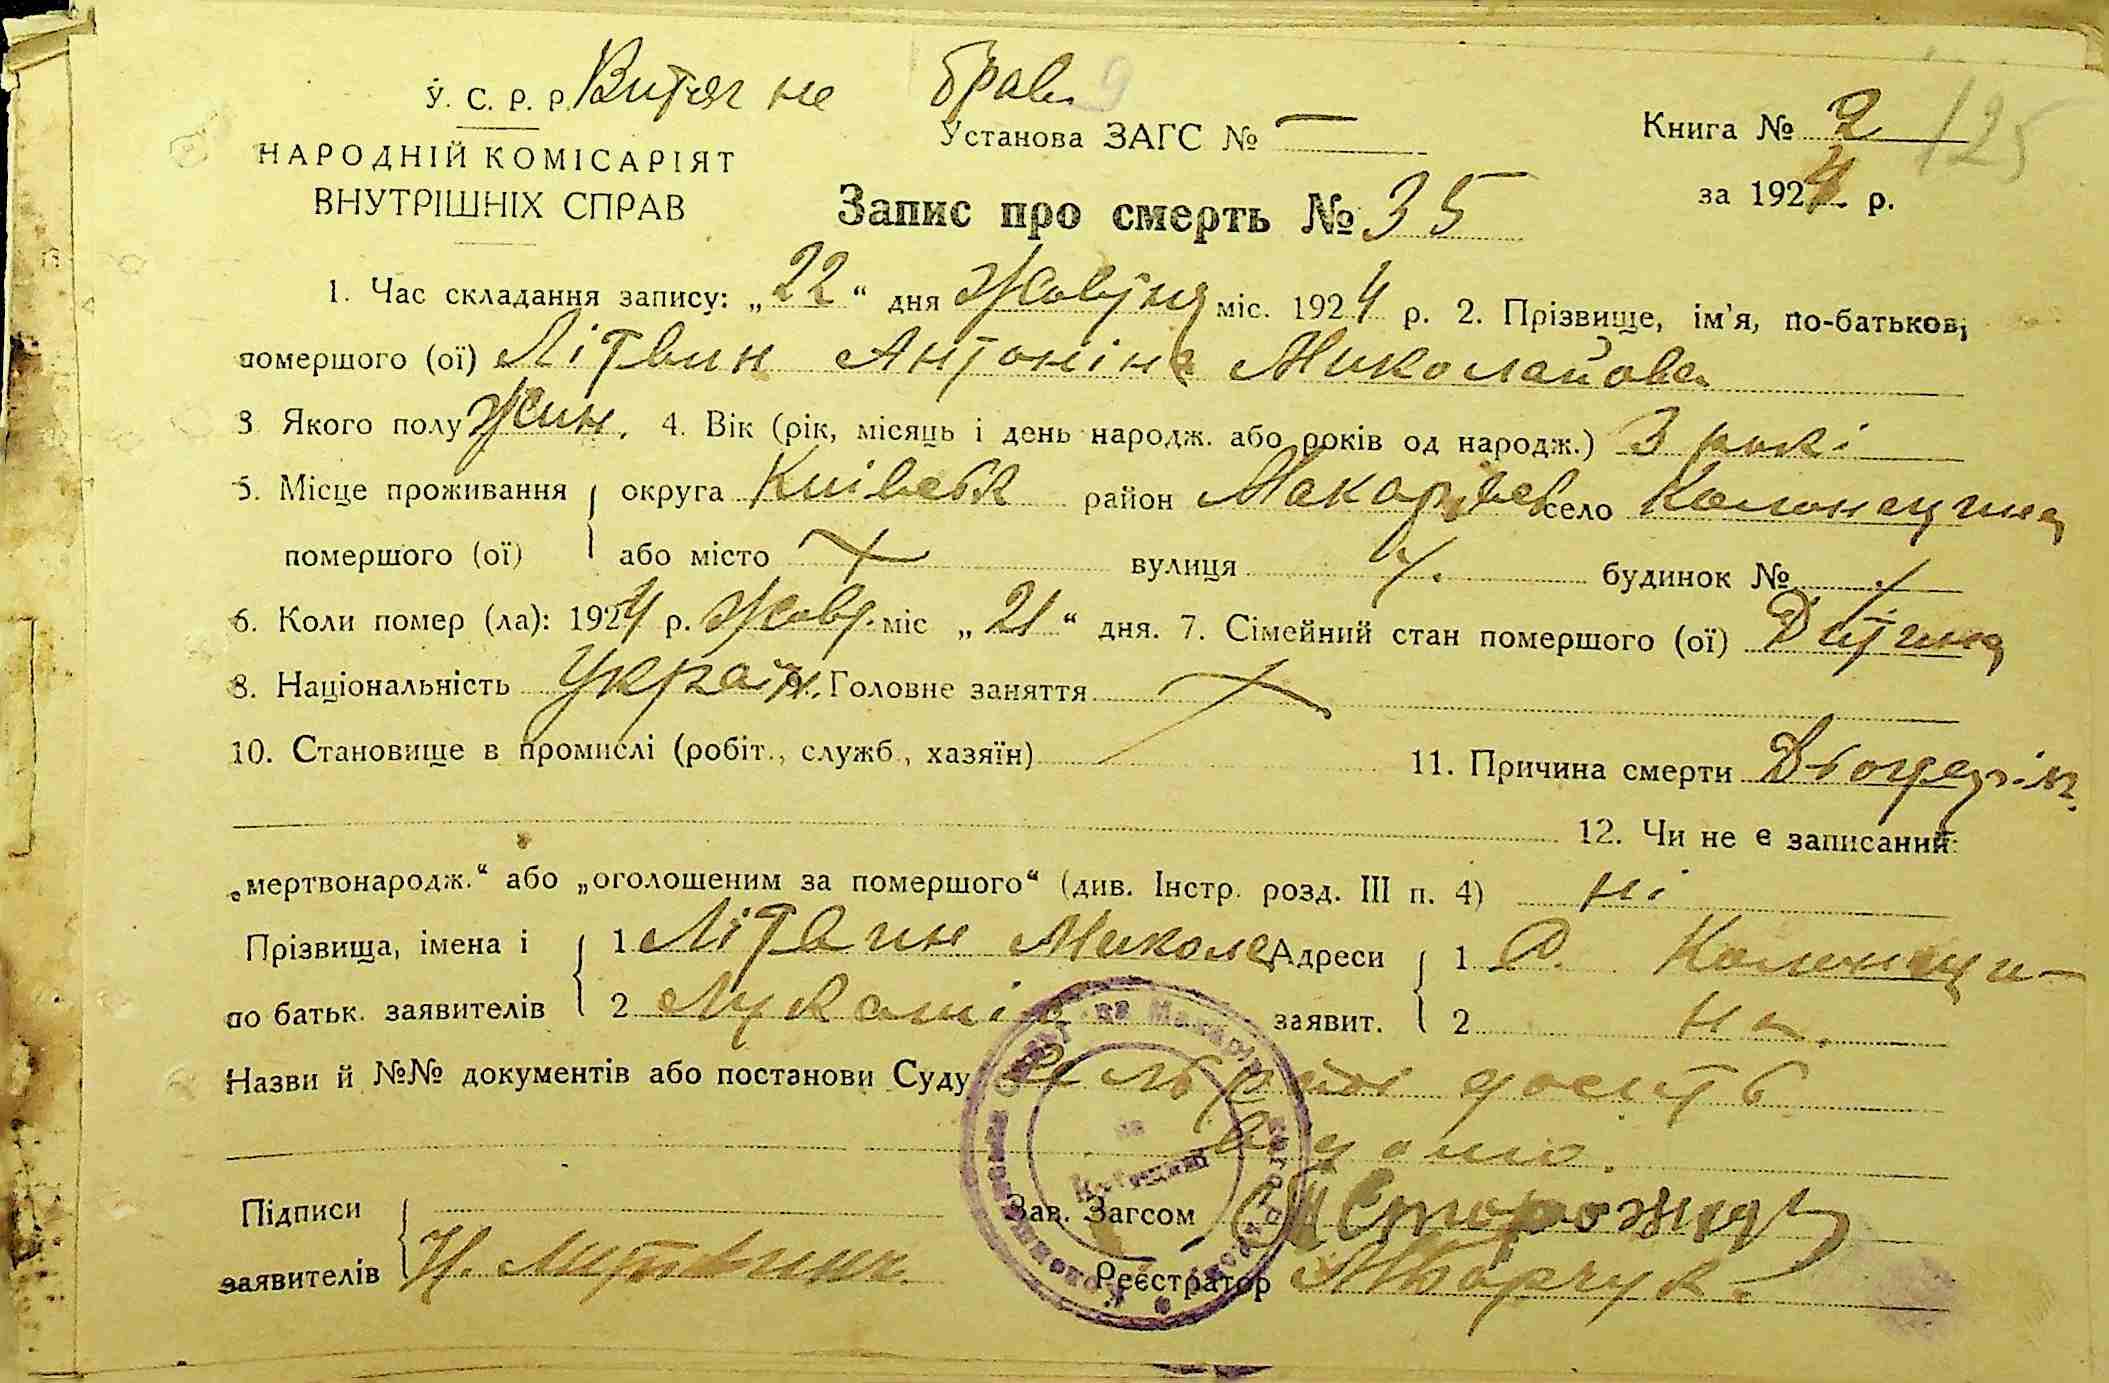 У. С. Р. Р. Витяг не брав
Установа ЗАГС № —
Книга № 2
125
НАРОДНІЙ КОМІСАРІЯТ
ВНУТРІШНІХ СПРАВ
за 1924 р.
Запис про смерть № 35
1. Час складання запису: „22“ дня Жовтня міс. 1924 р. 2. Прізвище, ім'я, по-батькові
помершого (ої) Літвин Антоніна Миколайова
3 Якого полу Жин. 4. Вік (рік, місяць і день народж. або років од народж.) 3 рокі
5. Місце проживання округа Київськ район Макарівськ село Колонщина
помершого (ої) або місто вулиця будинок №
6. Коли помер (ла): 1924 р. Жовт. міс „21“ дня. 7. Сімейний стан помершого (ої) Дитина
8. Національність Україн. 9. Головне заняття
10. Становище в промислі (робіт., служб., хазяїн) 11. Причина смерти
12. Чи не є записаний
„мертвонародж.“ або „оголошеним за помершого“ (див. Інстр. розд. III п. 4) ні
Прізвища, імена і 1 Літвин Микола Адреси 1 С. Колонщи-
по батьк. заявителів 2 Лукашів заявит. 2 на.
Назви й №№ документів або постанови Суду особ
відомо.
Підписи Зав. Загсом Сторожук
заявителів Н. Литвин Реєстратор МБорчук.